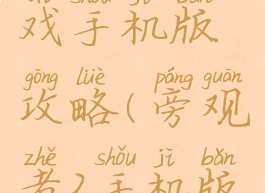 戏手机版
gōng lüè páng guān
攻略(旁观
zhě shǒu jī bǎn
者)手机版